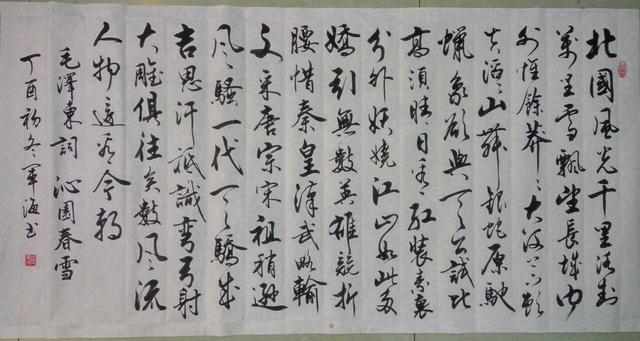 北國風光千里冰封
萬里雪飄望長城内
外惟餘莽〻大河上下頓
失滔〻山舞銀蛇原馳
蠟象欲與天公試比
高須晴日看紅裝素裹
分外妖嬈江山如此多
嬌引無數英雄競折
腰惜秦皇漢武略輸
文采唐宗宋祖稍遜
風騷一代天驕成
吉思汗祗識彎弓射
大雕俱往矣數風流
人物還看今朝
毛澤東詞 沁園春雪
丁酉初冬軍海書